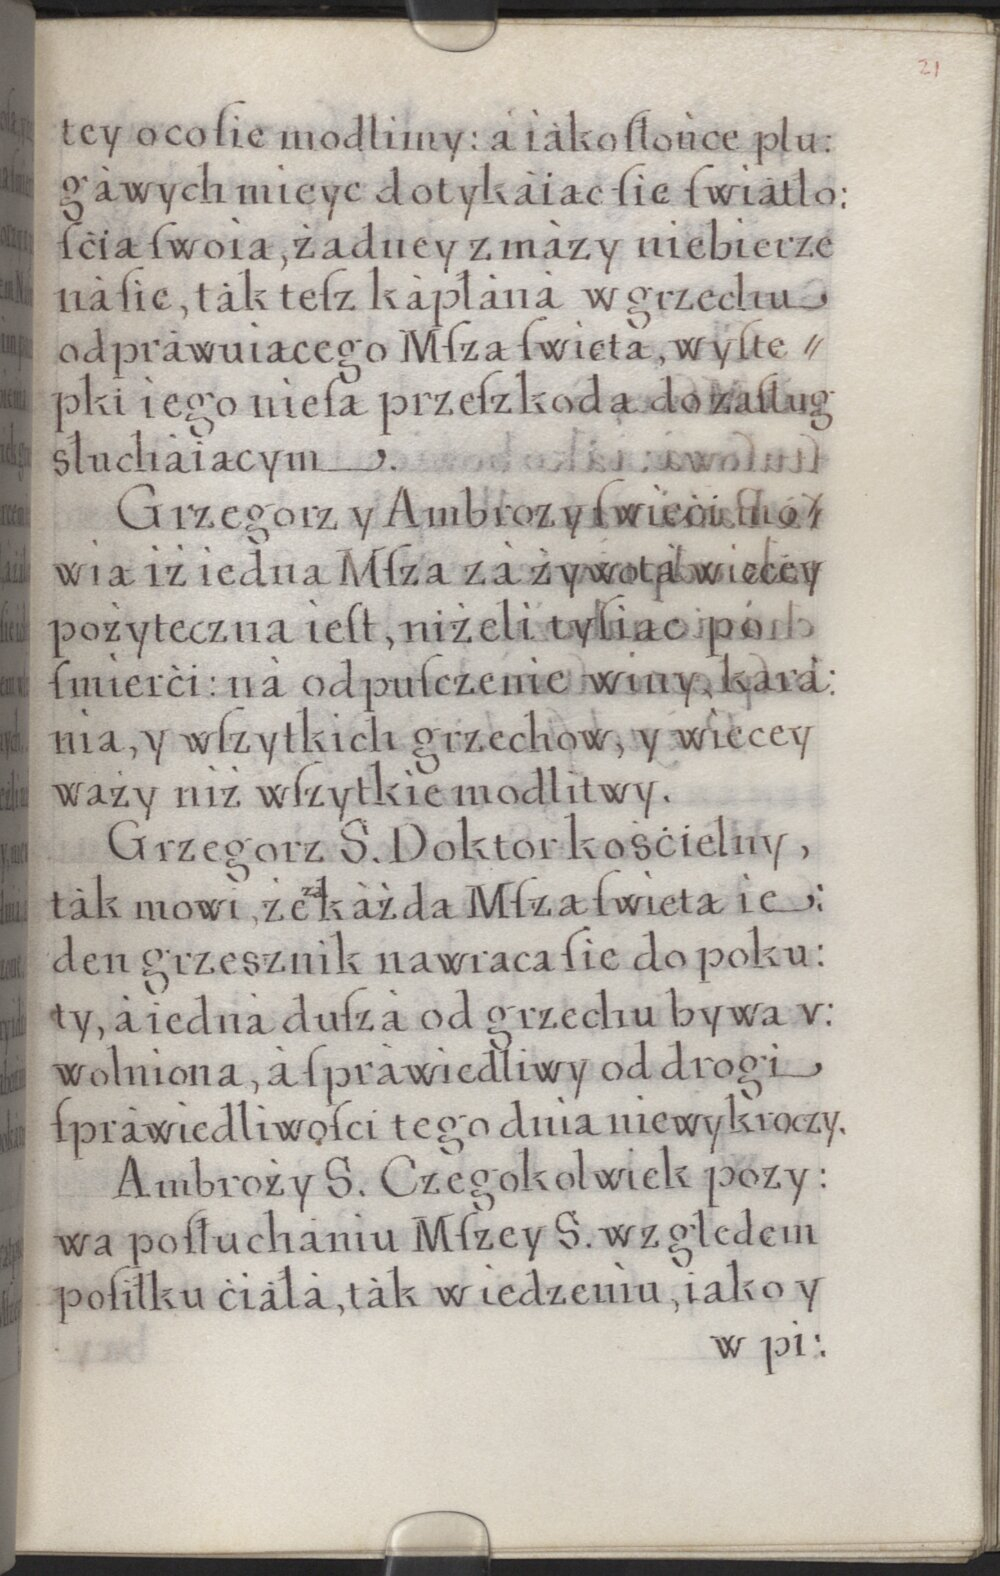 21
tey o co ſie modlimy: á iáko ſłońce plu:
gáwych mieyc dotykáiac ſie ſwiátło:
ſćia ſwoia, żadney zmázy niebierze
ná ſie, ták teſz kápłáná w grzechu
odpráwuiacego Mſza ſwieta, wyſte〃
pki iego nieſa przeſzkoda do zaſług
słucháiacym.
Grzegorz y Ambrozy ſwięći mó:
wia iż iedna Mſza zá żywotá wiecey
pożyteczna ieſt, niżeli tyſiac po
ſmierći: ná odpuſczenie winy, kará:
nia, y wſzytkich grzechow, y wiecey
waży niż wſzytkie modlitwy.
Grzegorz S. Doktor kościelny,
ták mowi, że za káżda Mſza ſwieta ie:
den grzesznik nawraca ſie do poku:
ty, á iedná duſzá od grzechu bywa v:
wolniona, á ſpráwiedliwy od drogi
ſpráwiedliwoſci tego dnia niewykroczy.
Ambroży S. Czegokolwiek pozy:
wa poſłuchániu Mſzey S. względem
poſiłku ćiáłá, ták w iedzeniu, iako y
w pi: